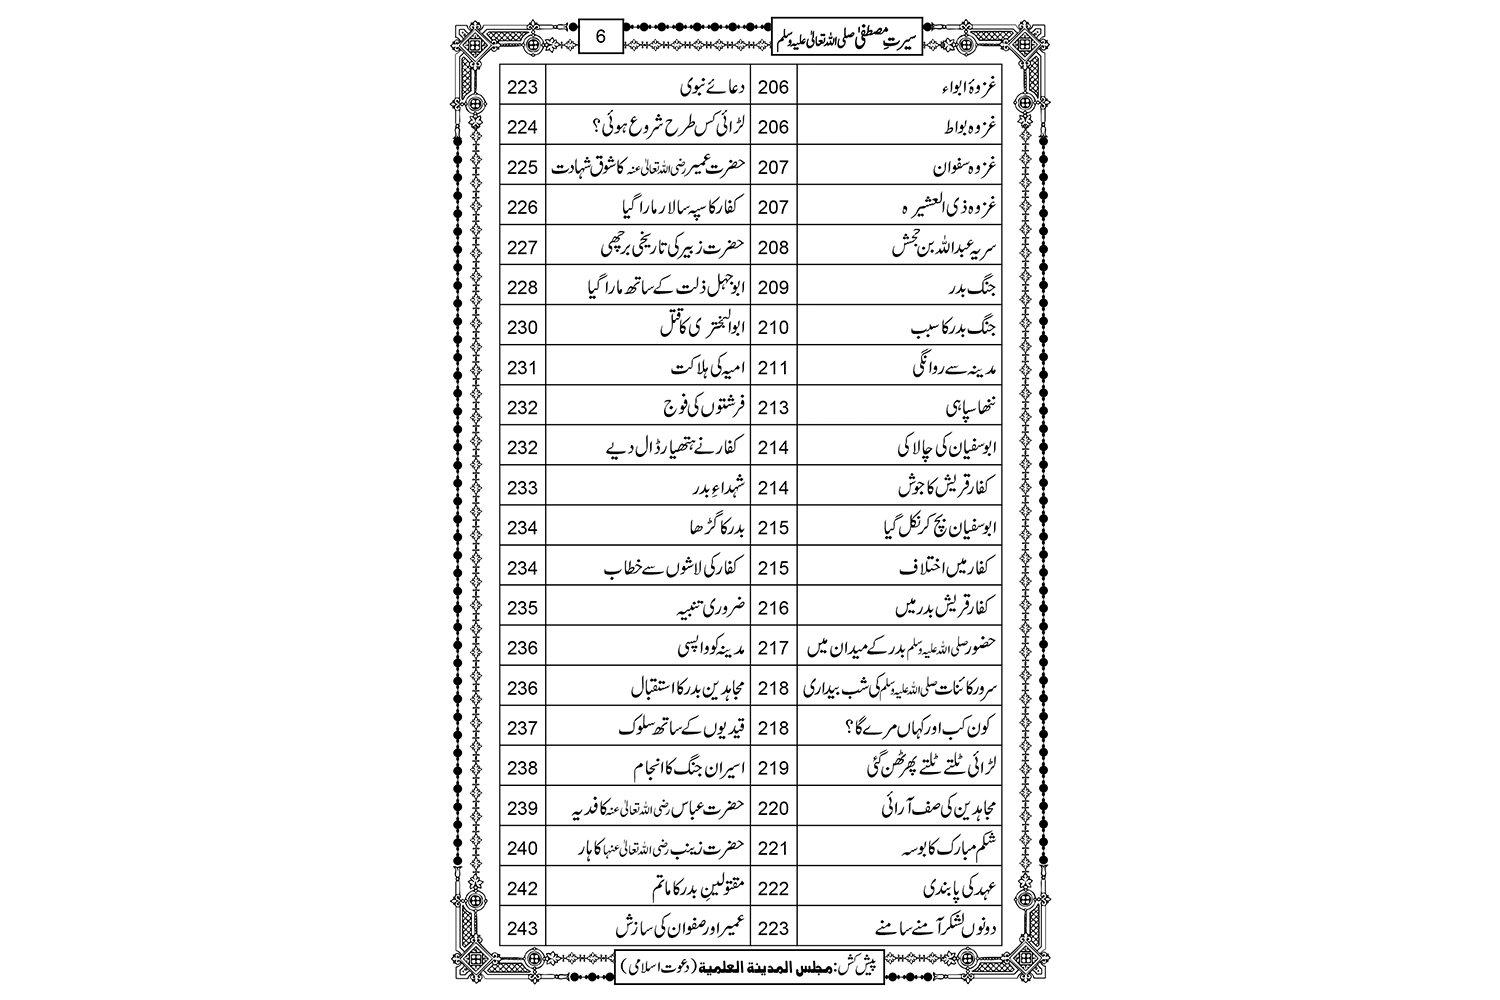 سیرتِ مصطفیٰ صلی اللہ تعالیٰ علیہ وسلم 6
غزوۂ ابواء 206 دعائے نبوی 223
غزوہ بواط 206 لڑائی کس طرح شروع ہوئی؟ 224
غزوہ سفوان 207 حضرت عمیر رضی اللہ تعالیٰ عنہ کا شوق شہادت 225
غزوہ ذی العشیرہ 207 کفار کا سپہ سالار مارا گیا 226
سریہ عبداللہ بن جحش 208 حضرت زبیر کی تاریخی برچھی 227
جنگ بدر 209 ابوجہل ذلت کے ساتھ مارا گیا 228
جنگ بدر کا سبب 210 ابوالبختری کا قتل 230
مدینہ سے روانگی 211 امیہ کی ہلاکت 231
ننھا سپاہی 213 فرشتوں کی فوج 232
ابوسفیان کی چالاکی 214 کفار نے ہتھیار ڈال دیے 232
کفار قریش کا جوش 214 شہداءِ بدر 233
ابوسفیان بچ کر نکل گیا 215 بدر کا گڑھا 234
کفار میں اختلاف 215 کفار کی لاشوں سے خطاب 234
کفار قریش بدر میں 216 ضروری تنبیہ 235
حضور صلی اللہ علیہ وسلم بدر کے میدان میں 217 مدینہ کو واپسی 236
سرور کائنات صلی اللہ علیہ وسلم کی شب بیداری 218 مجاہدین بدر کا استقبال 236
کون کب اور کہاں مرے گا؟ 218 قیدیوں کے ساتھ سلوک 237
لڑائی ٹلتے ٹلتے پھر ٹھن گئی 219 اسیران جنگ کا انجام 238
مجاہدین کی صف آرائی 220 حضرت عباس رضی اللہ تعالیٰ عنہ کا فدیہ 239
شکم مبارک کا بوسہ 221 حضرت زینب رضی اللہ تعالیٰ عنہا کا ہار 240
عہد کی پابندی 222 مقتولینِ بدر کا ماتم 242
دونوں لشکر آمنے سامنے 223 عمیر اور صفوان کی سازش 243
پیش کش: مجلس المدینۃ العلمیۃ (دعوت اسلامی)